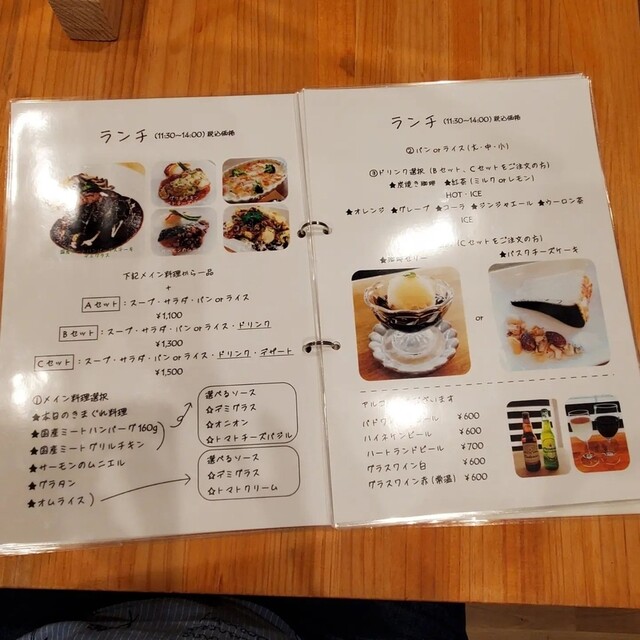 ランチ (11:30~14:00) 税込価格
下記メイン料理から一品
+
Aセット:スープ・サラダ・パン or ライス
¥1,100
Bセット:スープ・サラダ・パン or ライス・ドリンク
¥1,300
Cセット:スープ・サラダ・パン or ライス・ドリンク・デザート
¥1,500
①メイン料理選択
★本日のきまぐれ料理
★国産ミートハンバーグ160g
★国産ミートグリルチキン
★サーモンのムニエル
★グラタン
★オムライス
選べるソース
☆デミグラス
☆オニオン
☆トマトチーズバジル
選べるソース
☆デミグラス
☆トマトクリーム
ランチ (11:30~14:00) 税込価格
②パン or ライス(大・中・小)
③ドリンク選択(Bセット、Cセットをご注文の方)
★炭焼き珈琲 ★紅茶(ミルク or レモン)
HOT・ICE
★オレンジ ★グレープ ★コーラ ★ジンジャエール ★ウーロン茶
ICE
(Cセットをご注文の方)
★珈琲ゼリー ★バスクチーズケーキ
or
ビール ¥600
ハイネケンビール ¥600
ハートランドビール ¥700
グラスワイン白 ¥600
グラスワイン赤(常温) ¥600